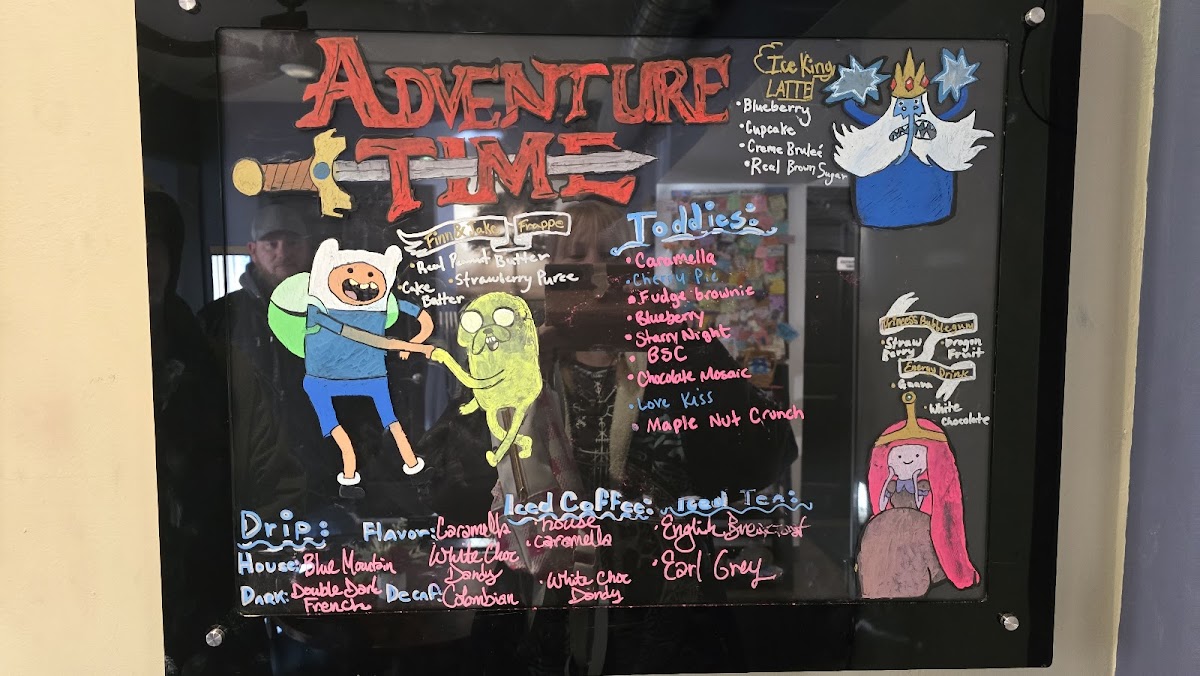 ADVENTURE
TIME
Ice King
LATTE
• Blueberry
• Cupcake
• Creme Bruleé
• Real Brown Sugar
Finn & Jake Frappe
• Real Peanut Butter
• Cake Batter
• Strawberry Puree
Toddies:
• Caramella
• Cherry Pie
• Fudge brownie
• Blueberry
• Starry Night
• BSC
• Chocolate Mosaic
• Love Kiss
• Maple Nut Crunch
Princess Bubblegum
Energy Drink
• Straw Berry
• Dragon Fruit
• Guava
• White Chocolate
Drip:
House: Blue Mountain
Dark: Double Dark
French
Flavor: Caramella
White Choc
Dandy
Decaf: Colombian
Iced Coffee:
• House
• Caramella
• White Choc
Dandy
Iced Tea:
• English Breakfast
• Earl Grey